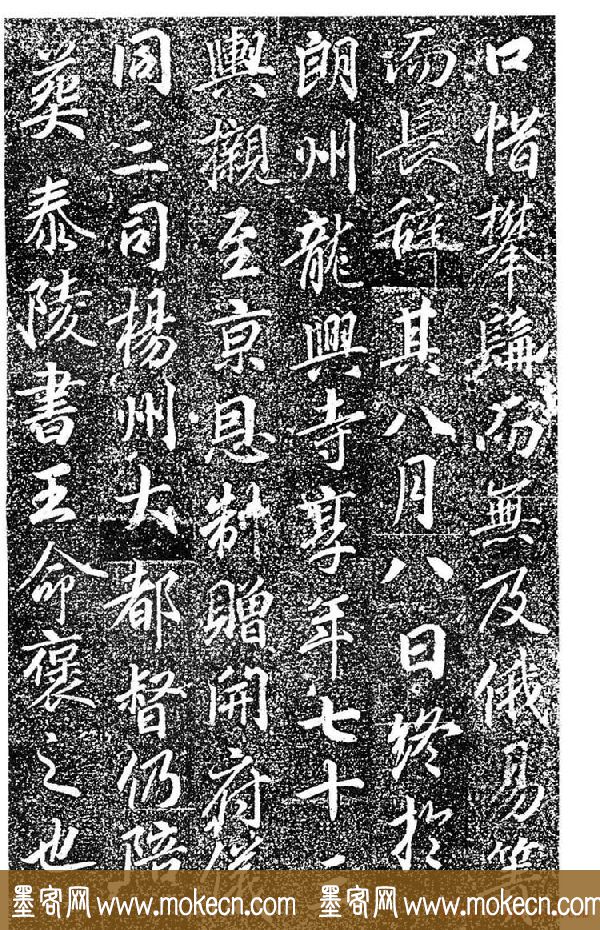 口惜攀髯而無及俄易箦
而長辭其八月八日終於
朗州龍興寺享年七十二
輿櫬至京恩制贈開府儀
同三司楊州大都督仍陪
葬泰陵書王命褒之也
墨客网 www.mokecn.com 墨客网 www.mokecn.com